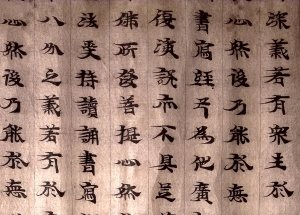 深義若有衆生於
心然後乃能於無
書寫經卷為他廣
復演說亦不具足
佛所發菩提心然
法受持讀誦書寫
八分之義若有於
心然後乃能於無